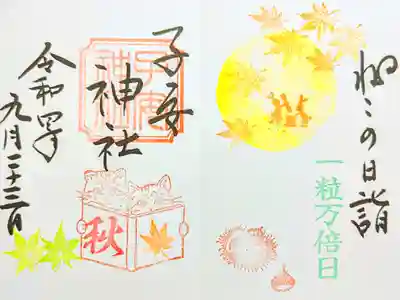 ねこの日詣
一粒万倍日
子安
神社
秋
令和四年
九月二十三日